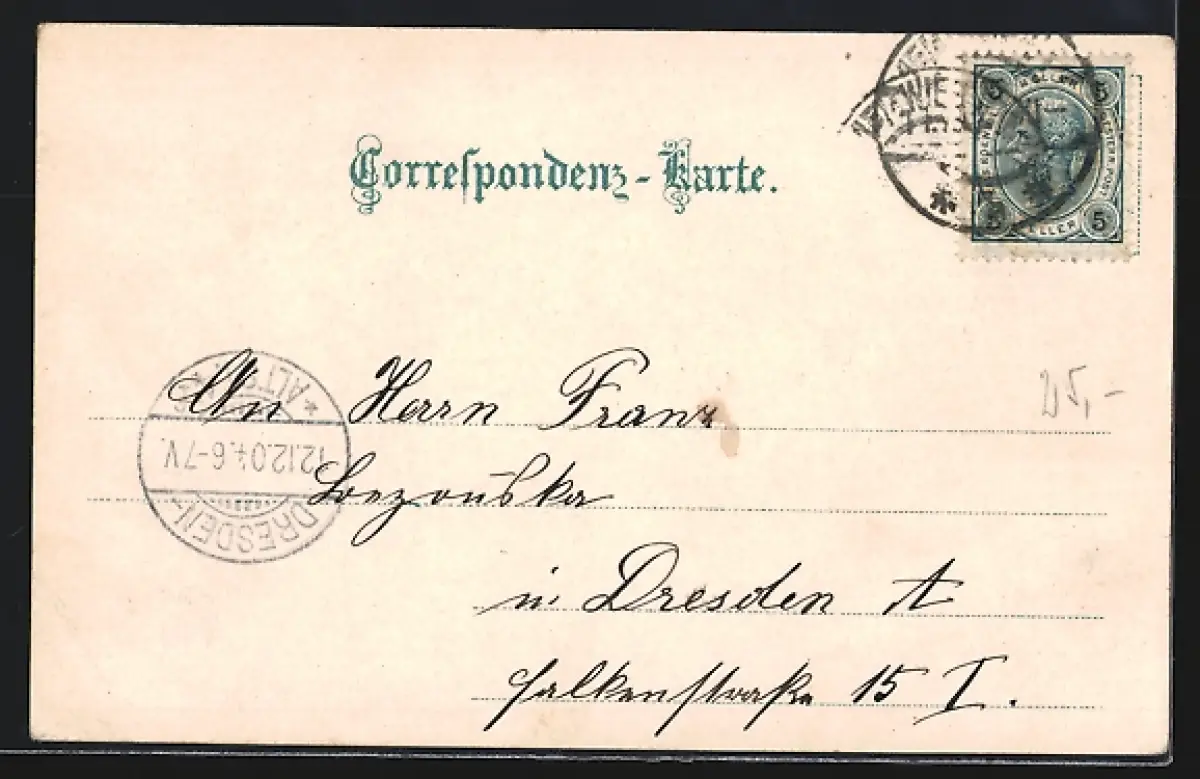 Correspondenz-Karte.
5 HELLER 5
5 HELLER 5
25,-
An Herrn Franz
* ALTST.
12.12.04. 6-7V.
DRESDEN-
in Dresden A
Falkenstraße 15 I.